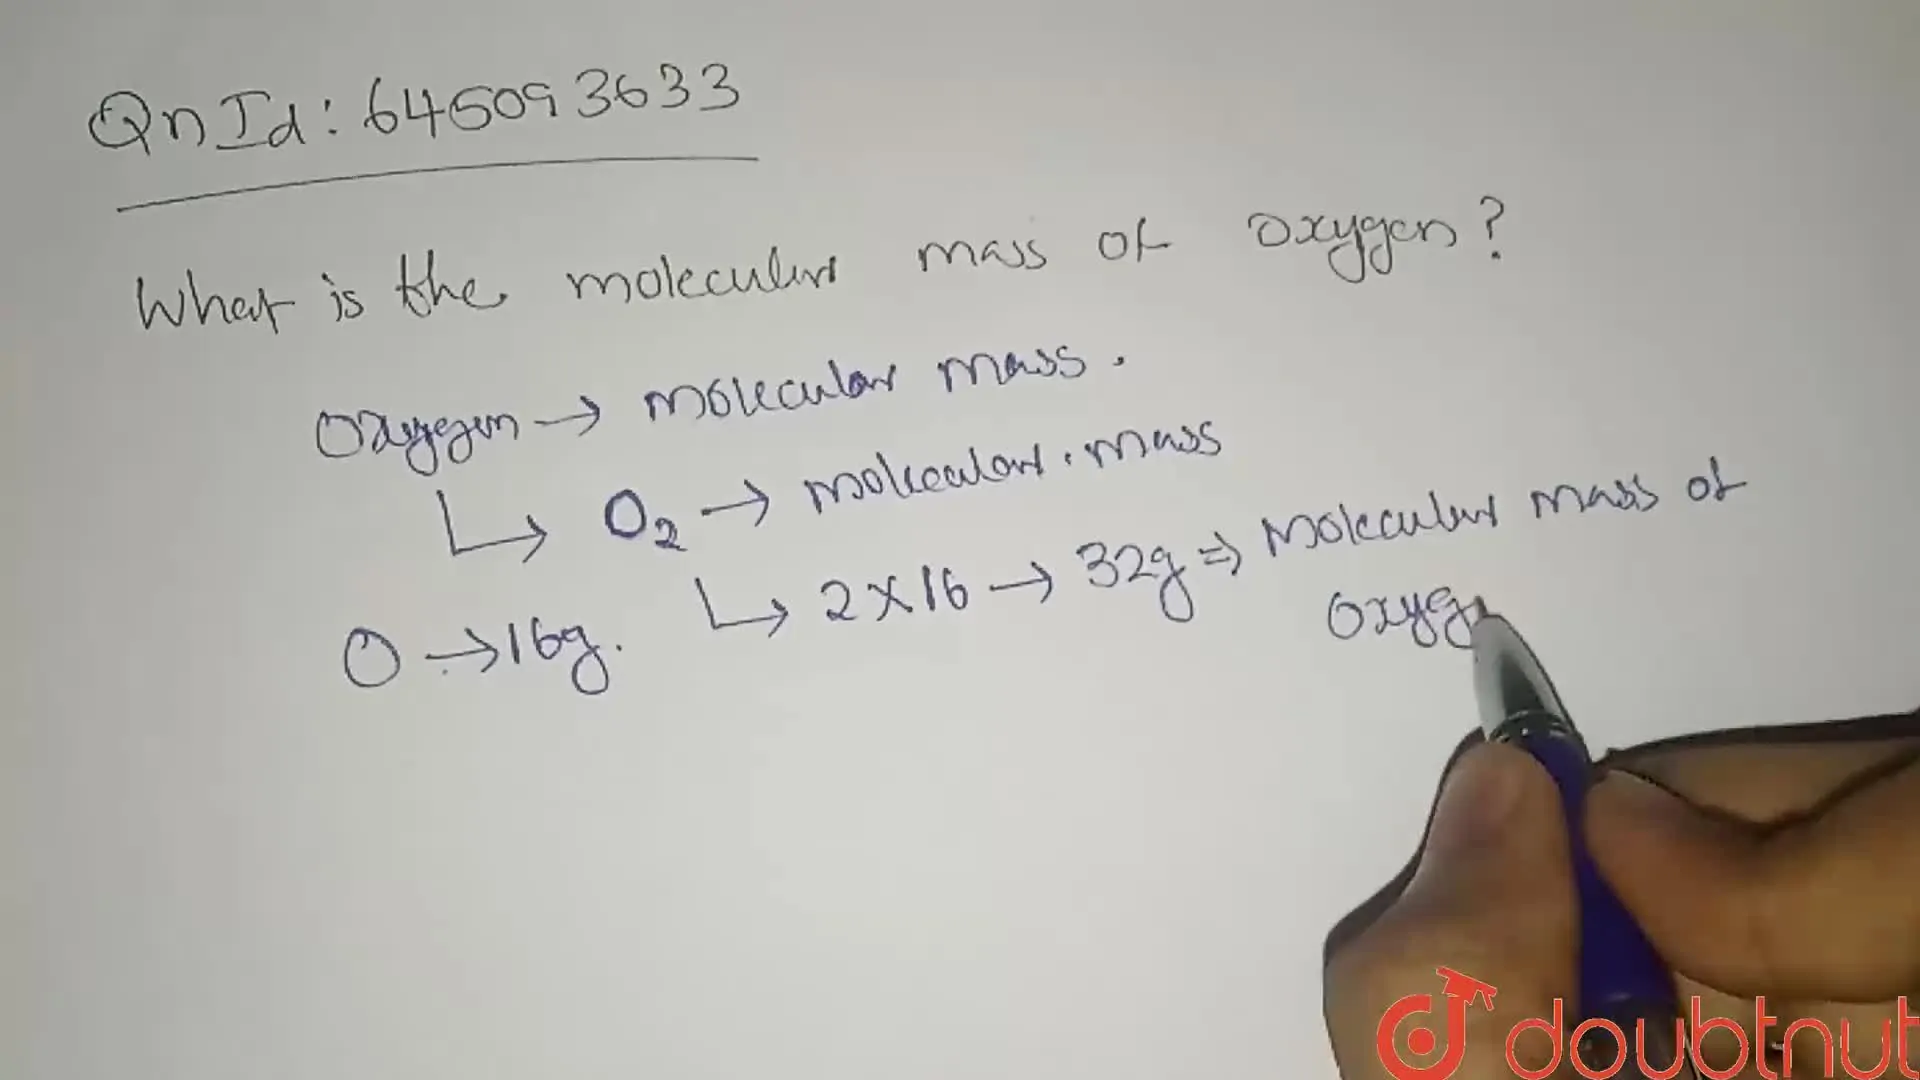 Qn Id: 645093633
What is the molecular mass of oxygen?
Oxygen → molecular mass.
O2 → molecular mass
2×16 → 32g ⇒ Molecular mass of
O → 16g.
oxyg
doubtnut